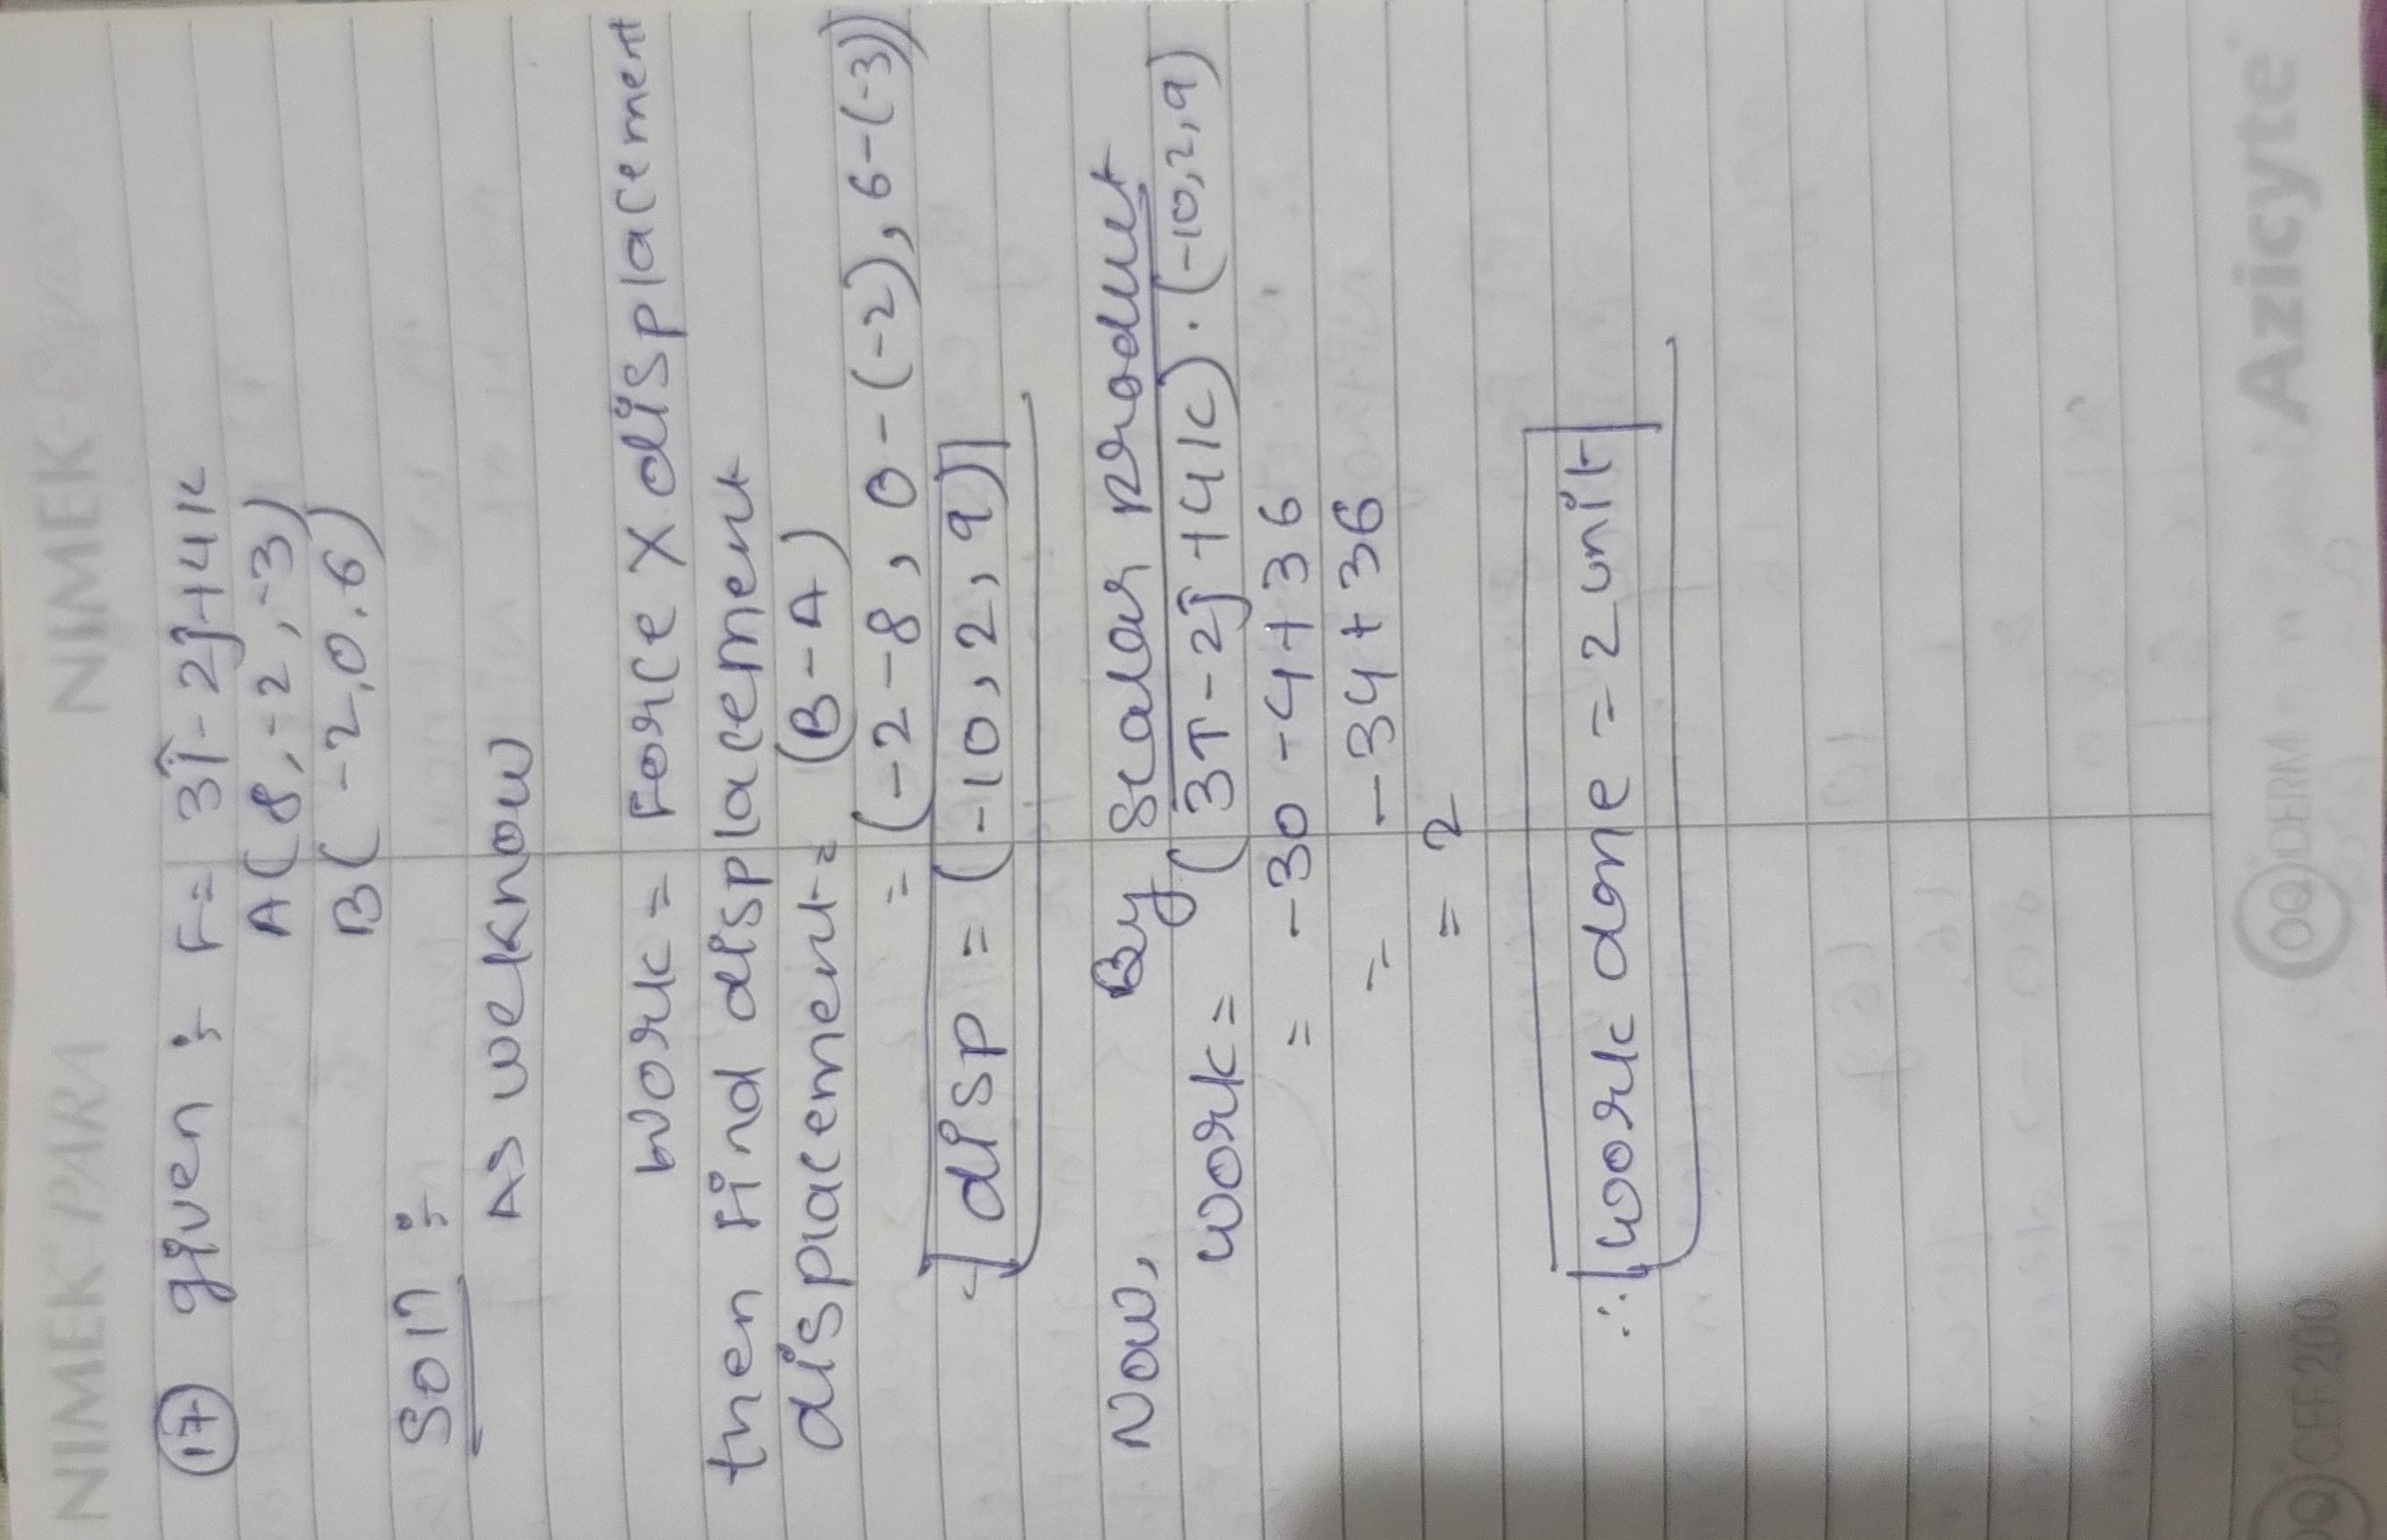 NIMEK PARA NIMEK-
17 given : F = 3î - 2ĵ + 4k
A(8, -2, -3)
B(-2, 0, 6)
Soln :
As we know
work = Force X displacement
then find displacement
displacement = (B - A)
= (-2 - 8, 0 - (-2), 6 - (-3))
disp = (-10, 2, 9)
Now, By scalar product
work = (3î - 2ĵ + 4k) · (-10, 2, 9)
= -30 - 4 + 36
= -34 + 36
= 2
∴ work done = 2 unit
CEF 200 DERM Azicyte